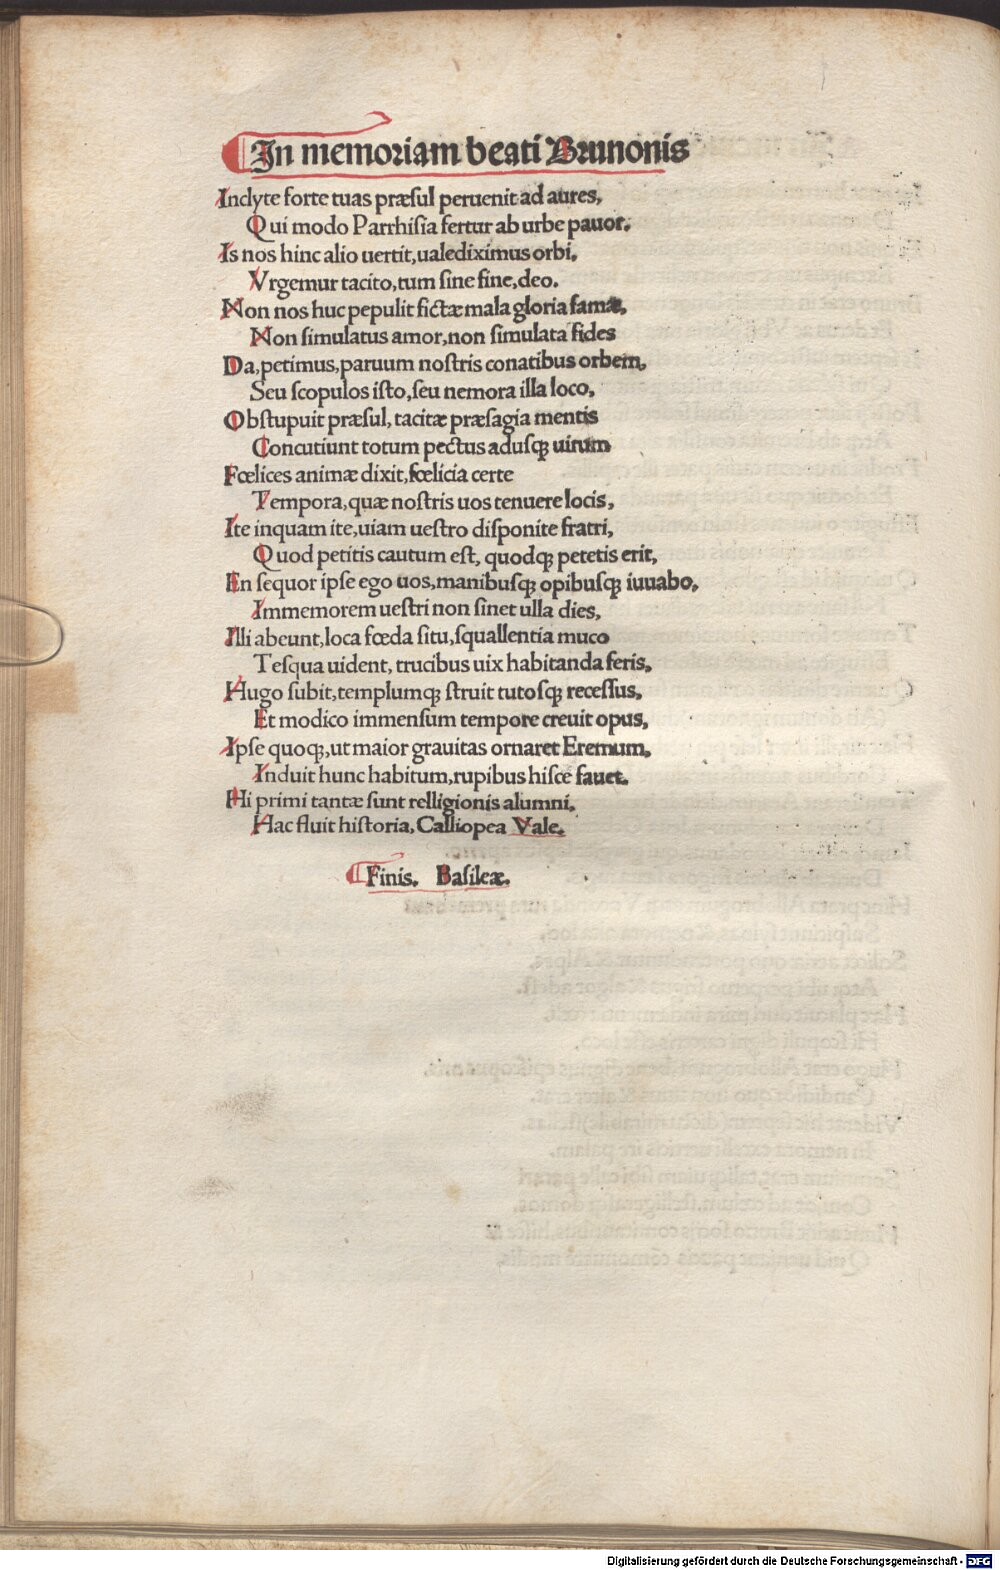 In memoriam beati Brunonis
Inclyte forte tuas præsul peruenit ad aures,
Qui modo Parrhisia fertur ab urbe pauor.
Is nos hinc alio uertit, ualediximus orbi,
Vrgemur tacito, tum sine fine, deo.
Non nos huc pepulit fictæ mala gloria famæ,
Non simulatus amor, non simulata fides
Da, petimus, paruum nostris conatibus orbem,
Seu scopulos isto, seu nemora illa loco,
Obstupuit præsul, tacitæ præsagia mentis
Concutiunt totum pectus adusqꝫ uirum
Fœlices animæ dixit, fœlicia certe
Tempora, quæ nostris uos tenuere locis,
Ite inquam ite, uiam uestro disponite fratri,
Quod petitis cautum est, quodqꝫ petetis erit,
En sequor ipse ego uos, manibusqꝫ opibusqꝫ iuuabo,
Immemorem uestri non sinet ulla dies,
Illi abeunt, loca fœda situ, squallentia muco
Tesqua uident, trucibus uix habitanda feris,
Hugo subit, templumqꝫ struit tutosqꝫ recessus,
Et modico immensum tempore creuit opus,
Ipse quoqꝫ, ut maior grauitas ornaret Eremum,
Induit hunc habitum, rupibus hisce fauet.
Hi primi tantæ sunt relligionis alumni,
Hac fluit historia, Calliopea Vale.
Finis. Basileæ.
Digitalisierung gefördert durch die Deutsche Forschungsgemeinschaft - DFG